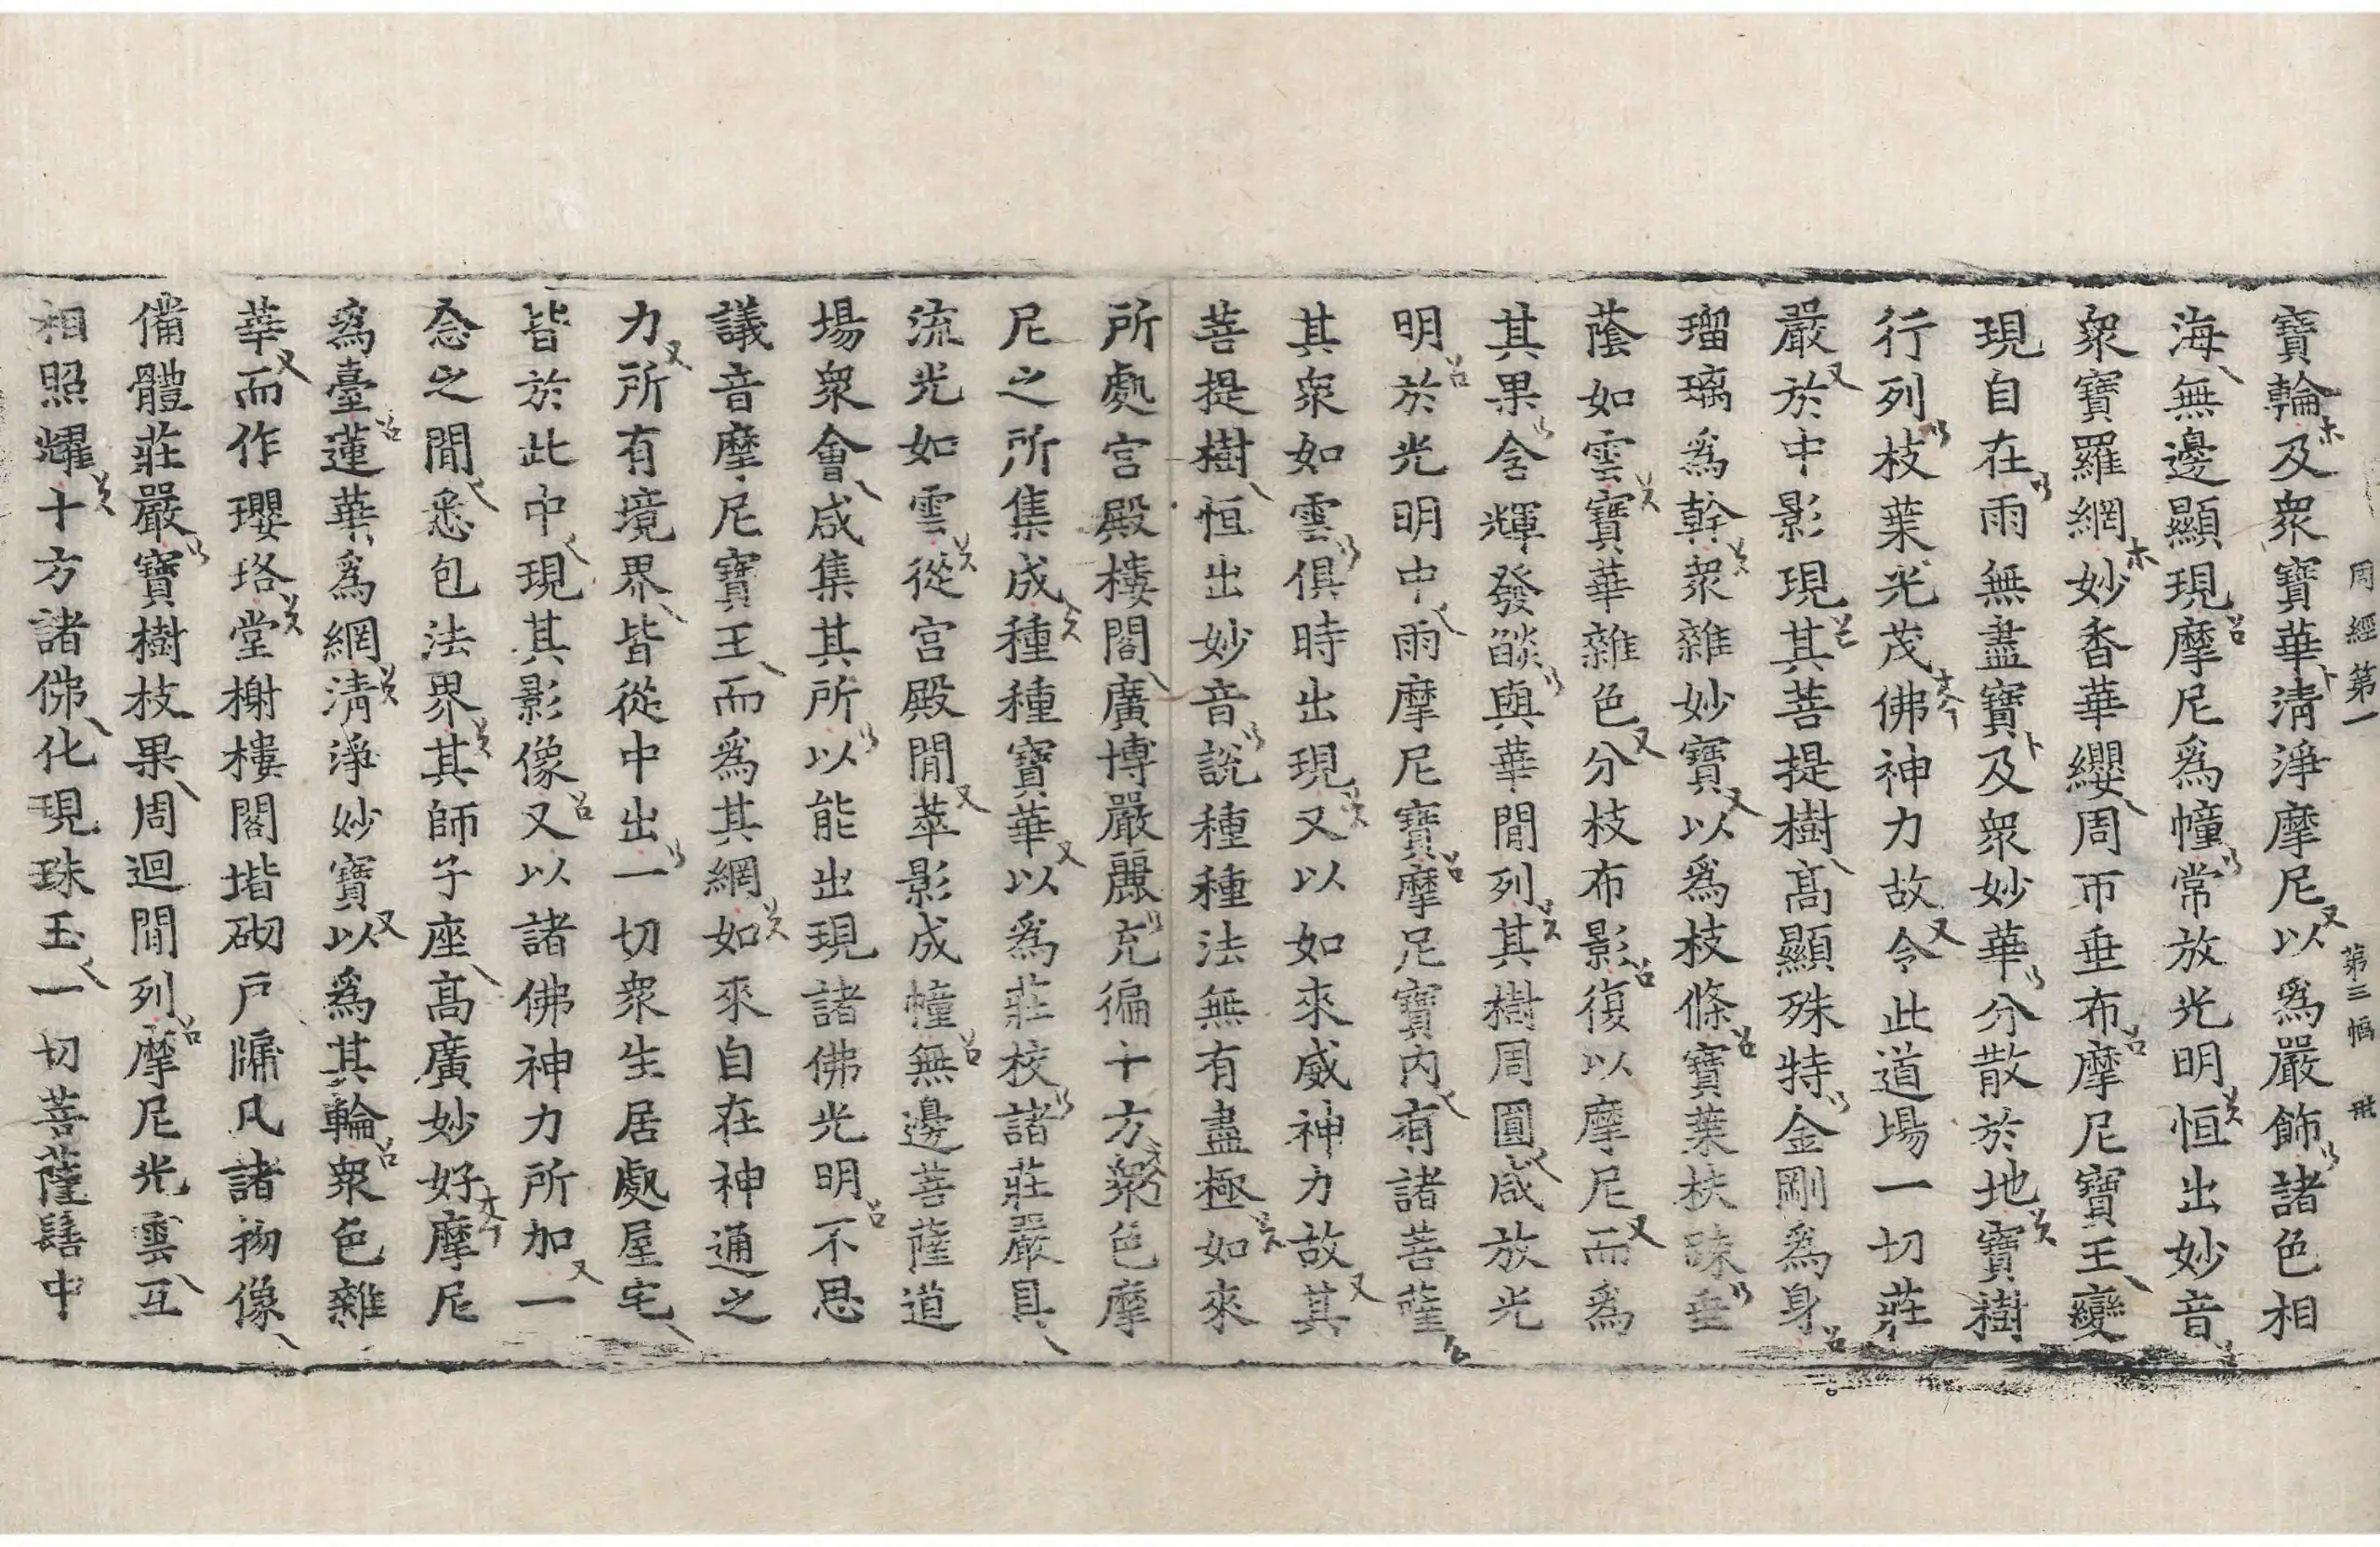 周經第一 第三幅
寶輪及衆寶華清淨摩尼以爲嚴飾諸色相
海無邊顯現摩尼爲幢常放光明恒出妙音
衆寶羅網妙香華纓周帀垂布摩尼寶王變
現自在雨無盡寶及衆妙華分散於地寶樹
行列枝葉光茂佛神力故令此道場一切莊
嚴於中影現其菩提樹髙顯殊特金剛爲身
瑠璃爲幹衆雜妙寶以爲枝條寶葉扶踈垂
蔭如雲寶華雜色分枝布影復以摩尼而爲
其果含輝發燄與華閒列其樹周圓咸放光
明於光明中雨摩尼寶摩尼寶內有諸菩薩
其衆如雲俱時出現又以如來威神力故其
菩提樹恒出妙音說種種法無有盡極如來
所處宮殿樓閣廣博嚴麗充徧十方衆色摩
尼之所集成種種寶華以爲莊校諸莊嚴具
流光如雲從宮殿閒萃影成幢無邊菩薩道
場衆會咸集其所以能出現諸佛光明不思
議音摩尼寶王而爲其網如來自在神通之
力所有境界皆從中出一切衆生居處屋宅
皆於此中現其影像又以諸佛神力所加一
念之閒悉包法界其師子座髙廣妙好摩尼
爲臺蓮華爲網淸淨妙寶以爲其輪衆色雜
華而作瓔珞堂榭樓閣堦砌戶牖凡諸物像
備體莊嚴寶樹枝果周迴閒列摩尼光雲互
相照耀十方諸佛化現珠玉一切菩薩髻中